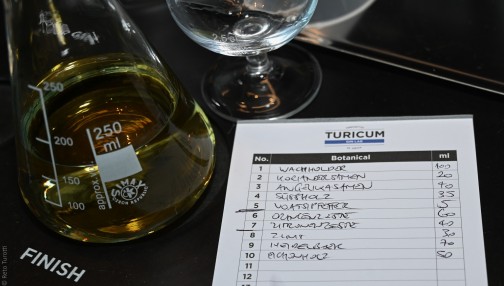 250
200
150
100
250
ml
approx.
FINISH
TURICUM
GIN LAB
No. Botanical ml
1 WACHHOLDER 100
2 KORIANDERSAMEN 20
3 ANGELIKASAMEN 40
4 SÜSSHOLZ 35
5 5
6 ORANGENZESTE 60
7 ZITRONENZESTE 40
8 ZIMT 30
9 HEIDELBEER 70
10 50
11
12
13
© Reto Turotti